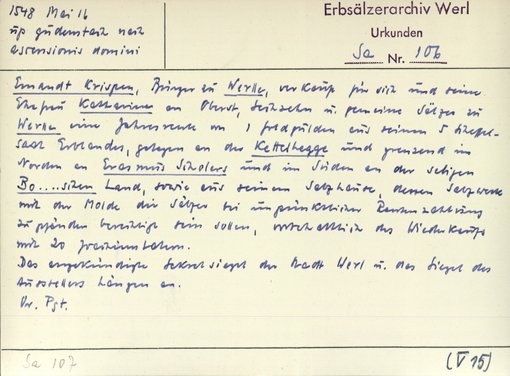 1548 Mai 16
up gudenstach nach
ascensionis domini
Erbsälzerarchiv Werl
Urkunden
Sa Nr. 106
Ermandt Krispen, Bürger zu Werlle, verkauft für sich und seine
Ehefrau Katharina an Oberst, Sechzehn u. gemeine Sälzer zu
Werlle eine Jahresrente von 1 Goldgulden aus seinen 5 Scheffel-
saat Erblandes, gelegen an der Kettelhegge und grenzend im
Norden an Erasmus Scholers und im Süden an der seligen
Bo....schen Land, sowie aus seinem Salzhause, dessen Salzwerk
mit der Molde die Sälzer bei unpünktlicher Rentenzahlung
zu pfänden berechtigt sein sollen, vorbehaltlich des Wiederkaufs
mit 20
Das angekündigte Sekretsiegel der Stadt Werl u. das Siegel des
Ausstellers hängen an.
Or. Pgt.
Sa 107
(V 15)